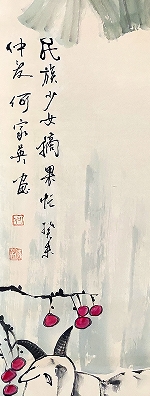 民族少女摘果忙 癸未
仲夏 何家英 画